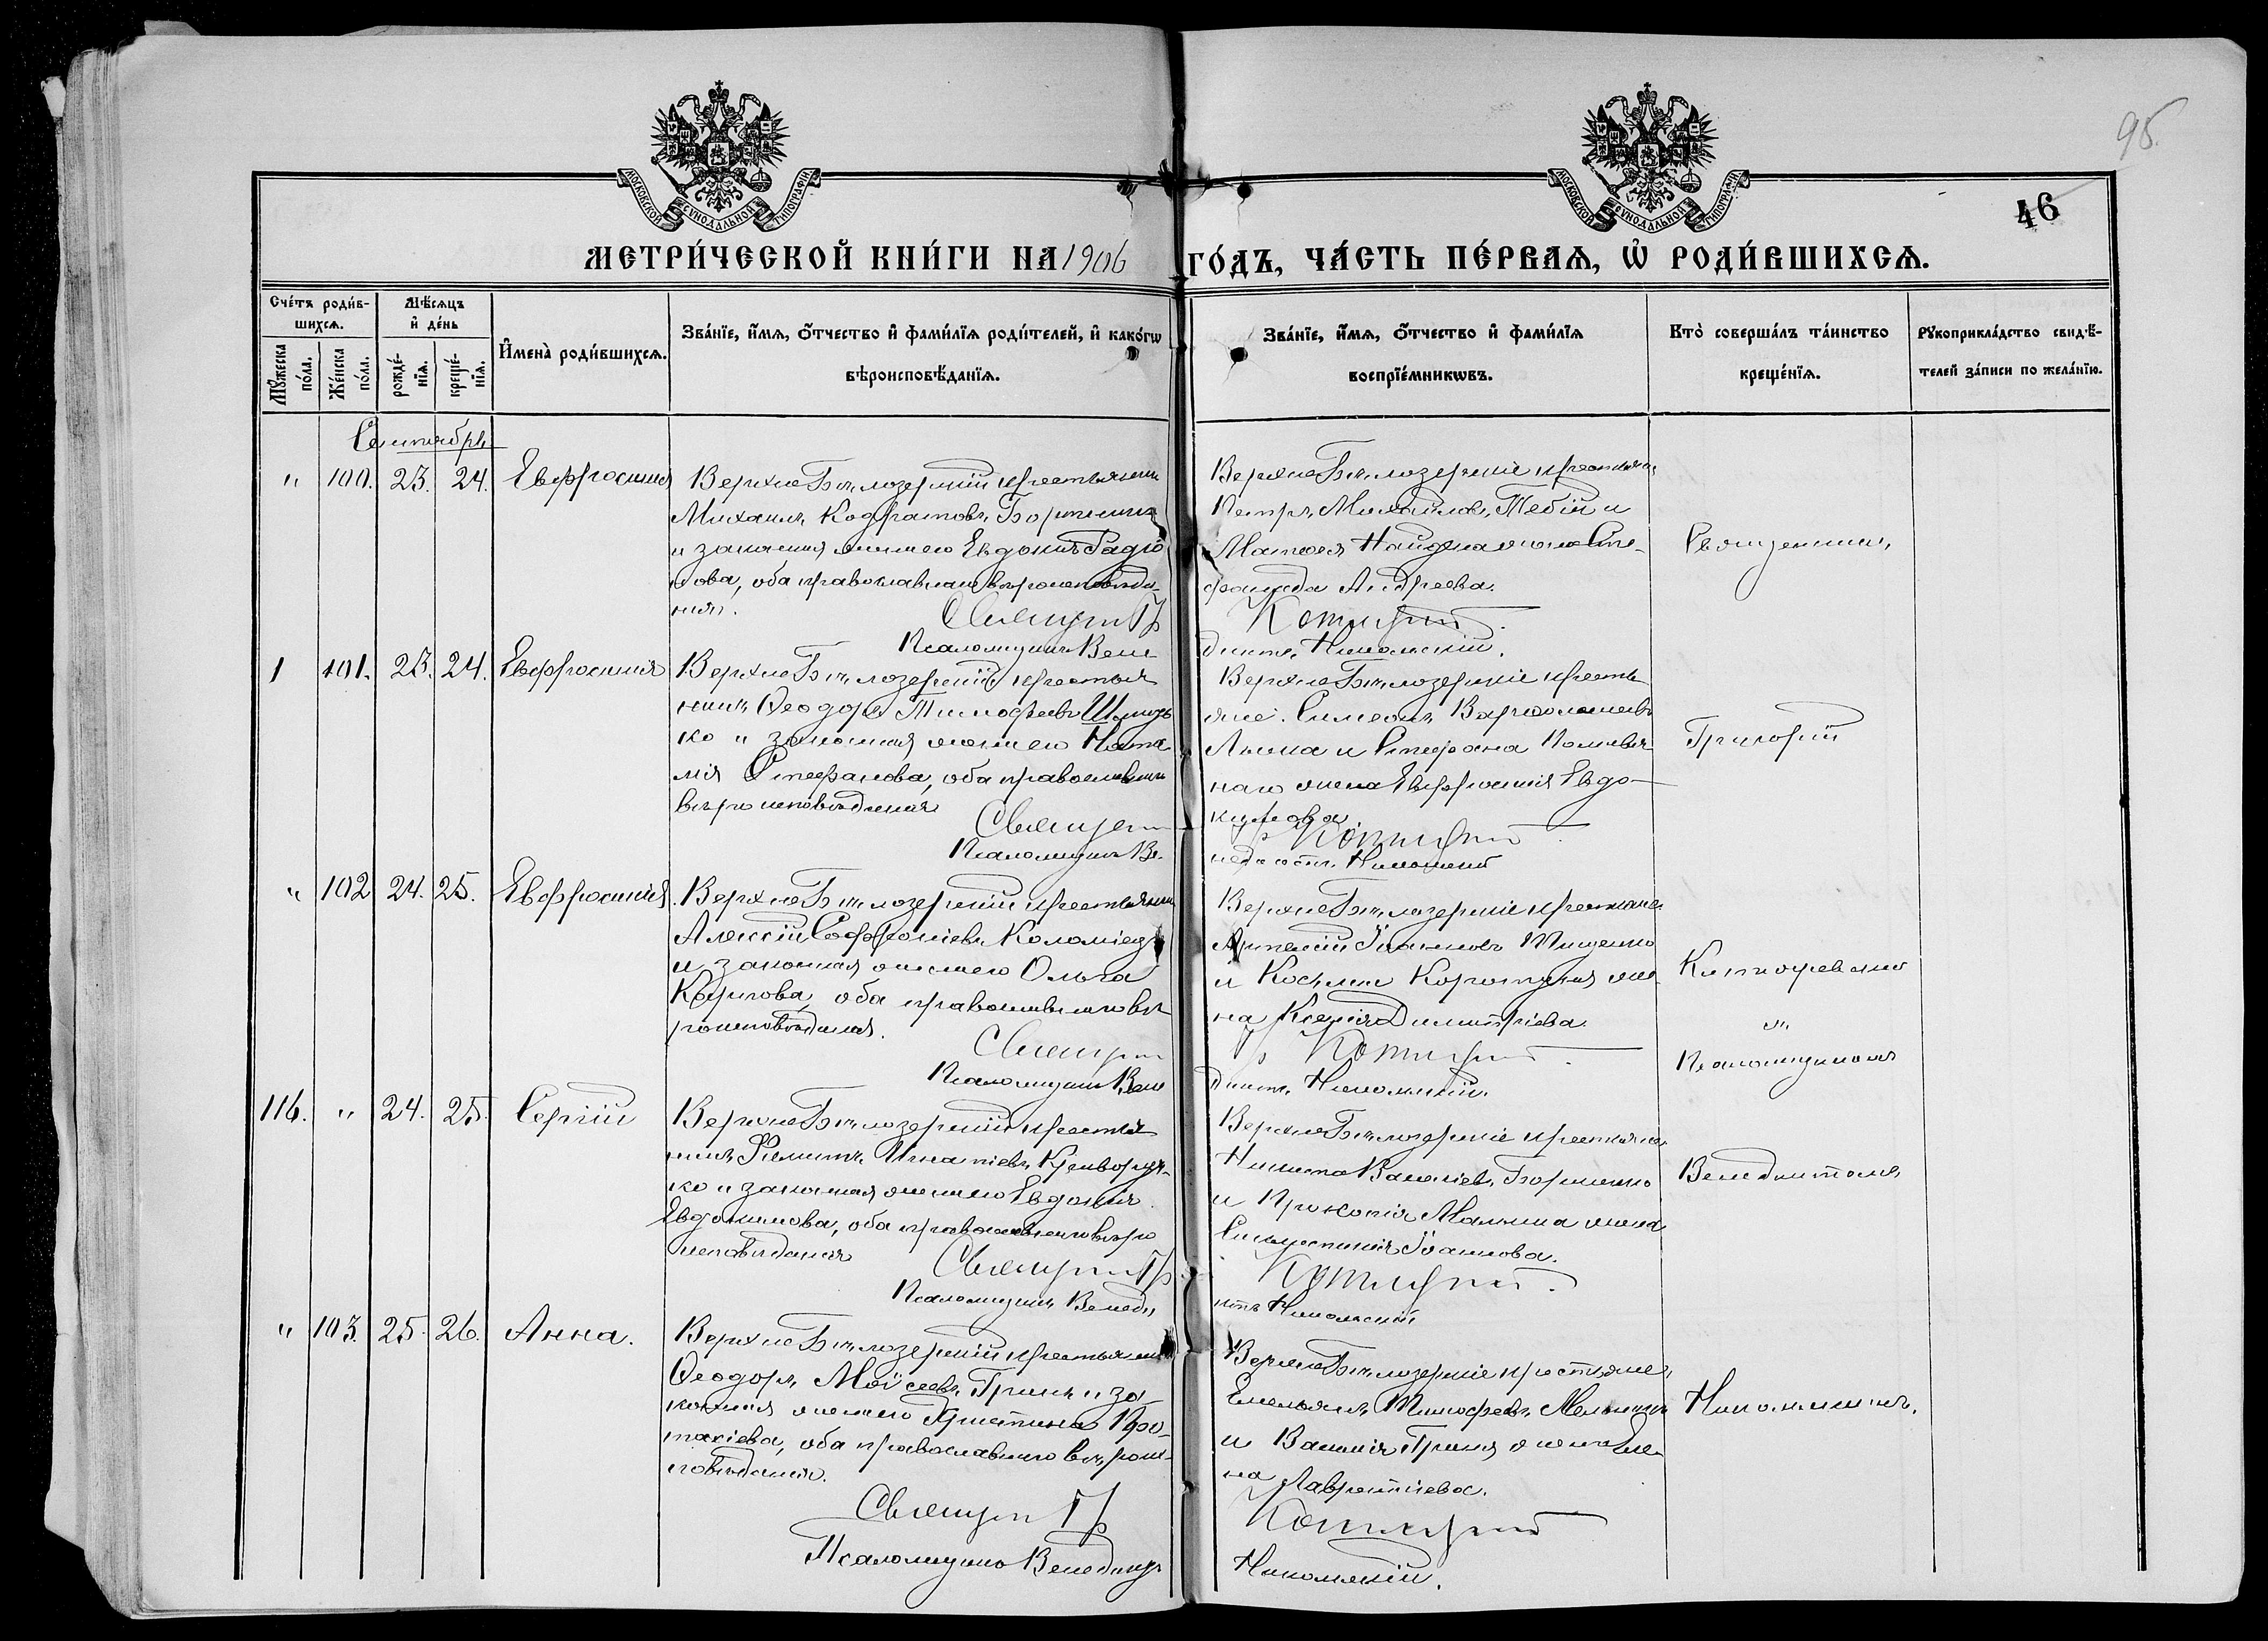 95.
46
МОСКОВСКОЙ СѴНОДАЛЬНОЙ ТИПОГРАФІИ
МОСКОВСКОЙ СѴНОДАЛЬНОЙ ТИПОГРАФІИ
МЕТРИ́ЧЕСКОЙ КНИ́ГИ НА 1906 ГО́ДЪ, ЧА́СТЬ ПЕ́РВАѦ, Ѡ҆ РОДИ́ВШИХСѦ.
Сче́тъ роди́в-
шихсѧ.
Мꙋ́жеска по́ла.
Же́нска по́ла.
Мѣ́сѧцъ
и҆ де́нь
рожде́-
нїѧ.
креще́-
нїѧ.
И҆мена̀ роди́вшихсѧ.
Зва́нїе, и҆́мѧ, ѻ҆́тчество и҆ фами́лїѧ роди́телей, и҆ како́гѡ
вѣроисповѣ́данїѧ.
Зва́нїе, и҆́мѧ, ѻ҆́тчество и҆ фами́лїѧ
воспрїе́мникѡвъ.
Кто̀ соверша́лъ та́инство
креще́нїѧ.
Рꙋкоприкла́дство свидѣ́-
телей за́писи по жела́нїю.
Сентябрь
" 100. 23. 24. Евфросинія
Верхне Бѣлозерскій крестьянинъ
Михаилъ Кодратовъ
и законная жена его Евдокія Радіо
нова, оба православнаго вѣроисповѣда-
нія.
Священ Гр
Псаломщикъ Вене
Верхне Бѣлозерскіе крестьяне
Петръ Михайловъ и
Матѳея Найдена жена Сте-
фанида Андреева.
Котицкій.
диктъ Никольскій.
Священникъ
1 101. 23. 24. Евфросинія
Верхне Бѣлозерскій крестья
нинъ Ѳеодоръ Тимоѳеевъ
ко и законная жена его Ната
лія Стефанова, оба православнаго
вѣроисповѣданія
Священ
Псаломщикъ Ве-
Верхне Бѣлозерскіе кресть
яне Симеонъ Варѳоломеевъ
и Стефана
наго жена Евфросинія Евдо-
кимова
Гр Котицкій
недиктъ Никольскій
Григорій
" 102 24. 25. Евфросинія.
Верхне Бѣлозерскій крестьянинъ
Алексій Софроніевъ Коломіецъ
и законная жена его Ольга
Карпова, оба православнаго вѣ
роисповѣданія.
Священ
Псаломщикъ Вене
Верхне Бѣлозерскіе крестьяне
Іоанновъ Тищенко
и Космы жена
Ксенія Димитріева.
Гр Котицкій.
диктъ Никольскій.
Котицкій
съ
Псаломщикомъ
116. " 24. 25. Сергій
Верхне Бѣлозерскій крестья
нинъ Филиппъ Игнатіевъ Криворуч-
ко и законная жена его Евдокія
Евдокимова, оба православнаго вѣро
исповѣданія
Священ Гр
Псаломщикъ Венеди
Верхне Бѣлозерскіе крестьяне
Никита Василіевъ
и Прокопія жена
Іоаннова.
Котицкій.
ктъ Никольскій
Венедиктомъ
" 103. 25. 26. Анна.
Верхне Бѣлозерскій крестьянинъ
Ѳеодоръ Моѵсеевъ Гринь и за-
конная жена его Христина Про-
тасіева, оба православнаго вѣроис-
повѣданія.
Священ Гр
Псаломщикъ Венедикт
Верхне Бѣлозерскіе крестьяне
Емельянъ Тимоѳеевъ Мельникъ
и Василія Гриня жена Еле-
на Лаврентіева.
Котицкій
Никольскій.
Никольскимъ.